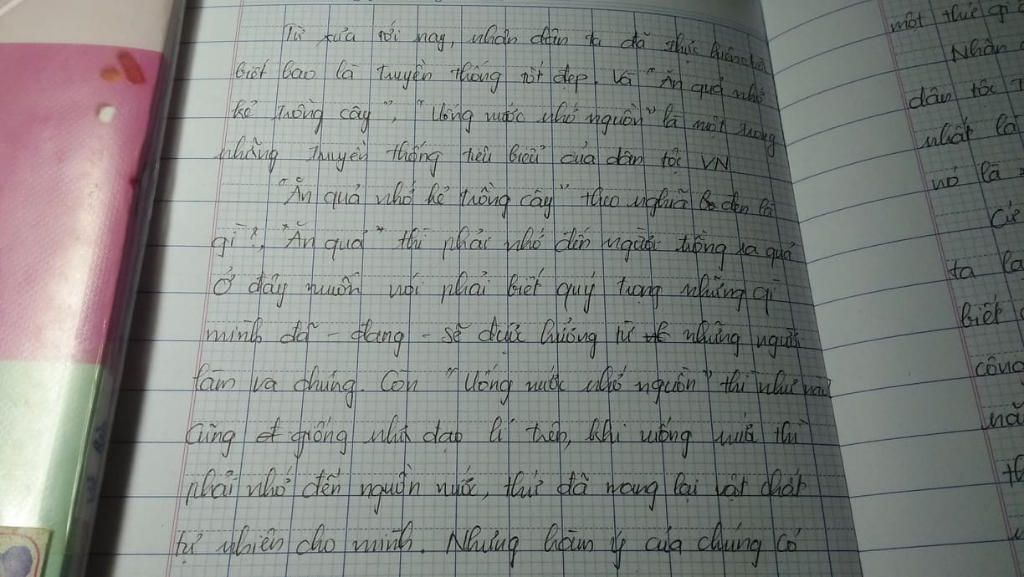 Từ xưa tới nay, nhân dân ta đã thực hiện
biết bao là truyền thống tốt đẹp. Và "Ăn quả nhớ
kẻ trồng cây", "Uống nước nhớ nguồn" là một trong
những truyền thống tiêu biểu của dân tộc VN
"Ăn quả nhớ kẻ trồng cây" theo nghĩa đen là
gì?, "Ăn quả" thì phải nhớ đến người trồng ra quả
Ở đây muốn nói phải biết quý trọng những gì
mình đã - đang - sẽ được hưởng từ những người
làm ra chúng. Còn "Uống nước nhớ nguồn" thì như
cũng giống như đạo lí trên, khi uống nước thì
phải nhớ đến nguồn nước, thứ đã mang lại vật chất
tự nhiên cho mình. Nhưng hàm ý của chúng có
một thứ
Nhân
dân tộc
nhất là
nó là
ta
biết
công